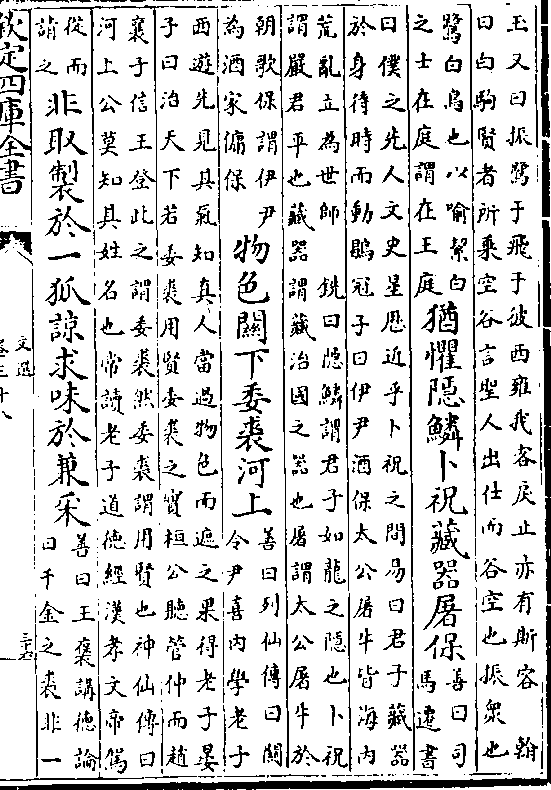 玉又曰振鷺于飛于彼西雍我客戾止亦有斯容 翰
曰白駒賢者所乗空谷言聖人出仕而谷空也振衆也
鷺白鳥也以喻絜白
之士在庭謂在王庭
猶懼隱鱗卜祝藏器屠保
善曰司
馬遷書
曰僕之先人文史星厯近乎卜祝之間易曰君子藏器
於身待時而動鶡冠子曰伊尹酒保太公屠牛皆海内
荒亂立為世師 銑曰隠鱗謂君子如龍之隠也卜祝
謂嚴君平也藏器謂藏治國之器也屠謂太公屠牛於
朝歌保謂伊尹
為酒家傭保
物色關下委裘河上
善曰列仙傳曰關
令尹喜内學老子
西遊先見其氣知真人當過物色而遮之果得老子晏
子曰治天下若委裘用賢委裘之實桓公聽管仲而趙
襄子信王登此之謂委裘然委裘謂用賢也神仙傳曰
河上公莫知其姓名也常讀老子道德經漢孝文帝駕
從而
詣之
非取製於一狐諒求味於兼采
善曰王襃講德論
曰千金之裘非一
欽定四庫全書
文選
卷三十八